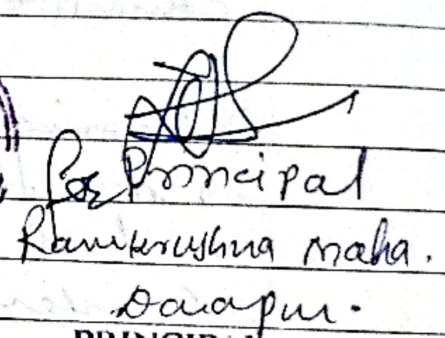 For Principal
Ramkrushna Maha.
Darapur.
PRINCIPAL